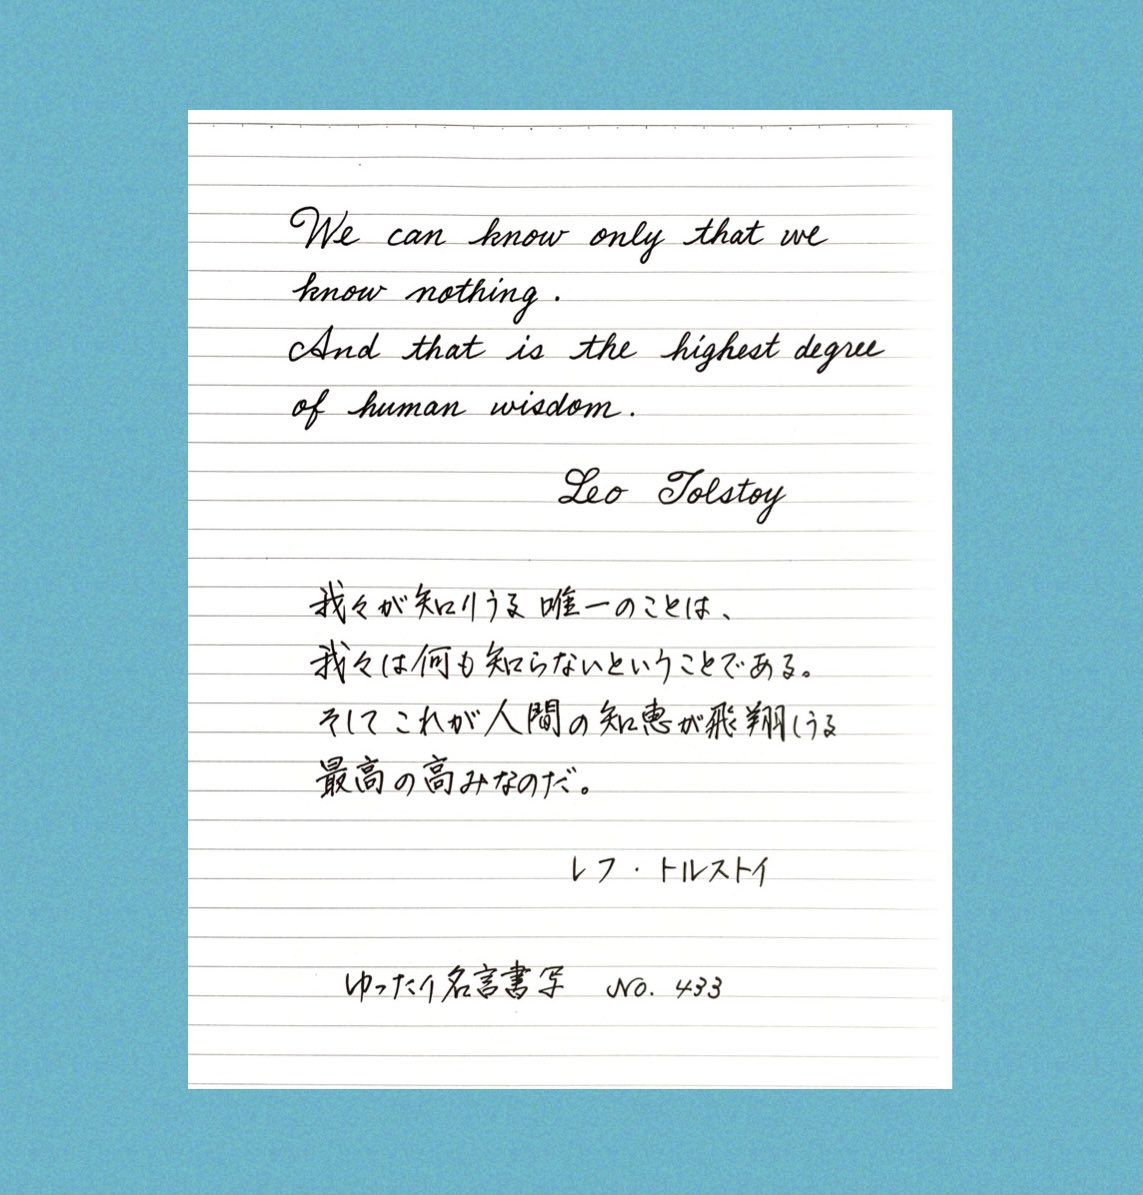 We can know only that we
know nothing.
And that is the highest degree
of human wisdom.
Leo Tolstoy
我々が知りうる唯一のことは、
我々は何も知らないということである。
そしてこれが人間の知恵が飛翔しうる
最高の高みなのだ。
レフ・トルストイ
ゆったり名言書写 No. 433